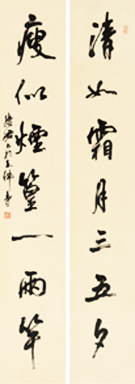 清如霜月三五夕
瘦似煙篁一兩竿